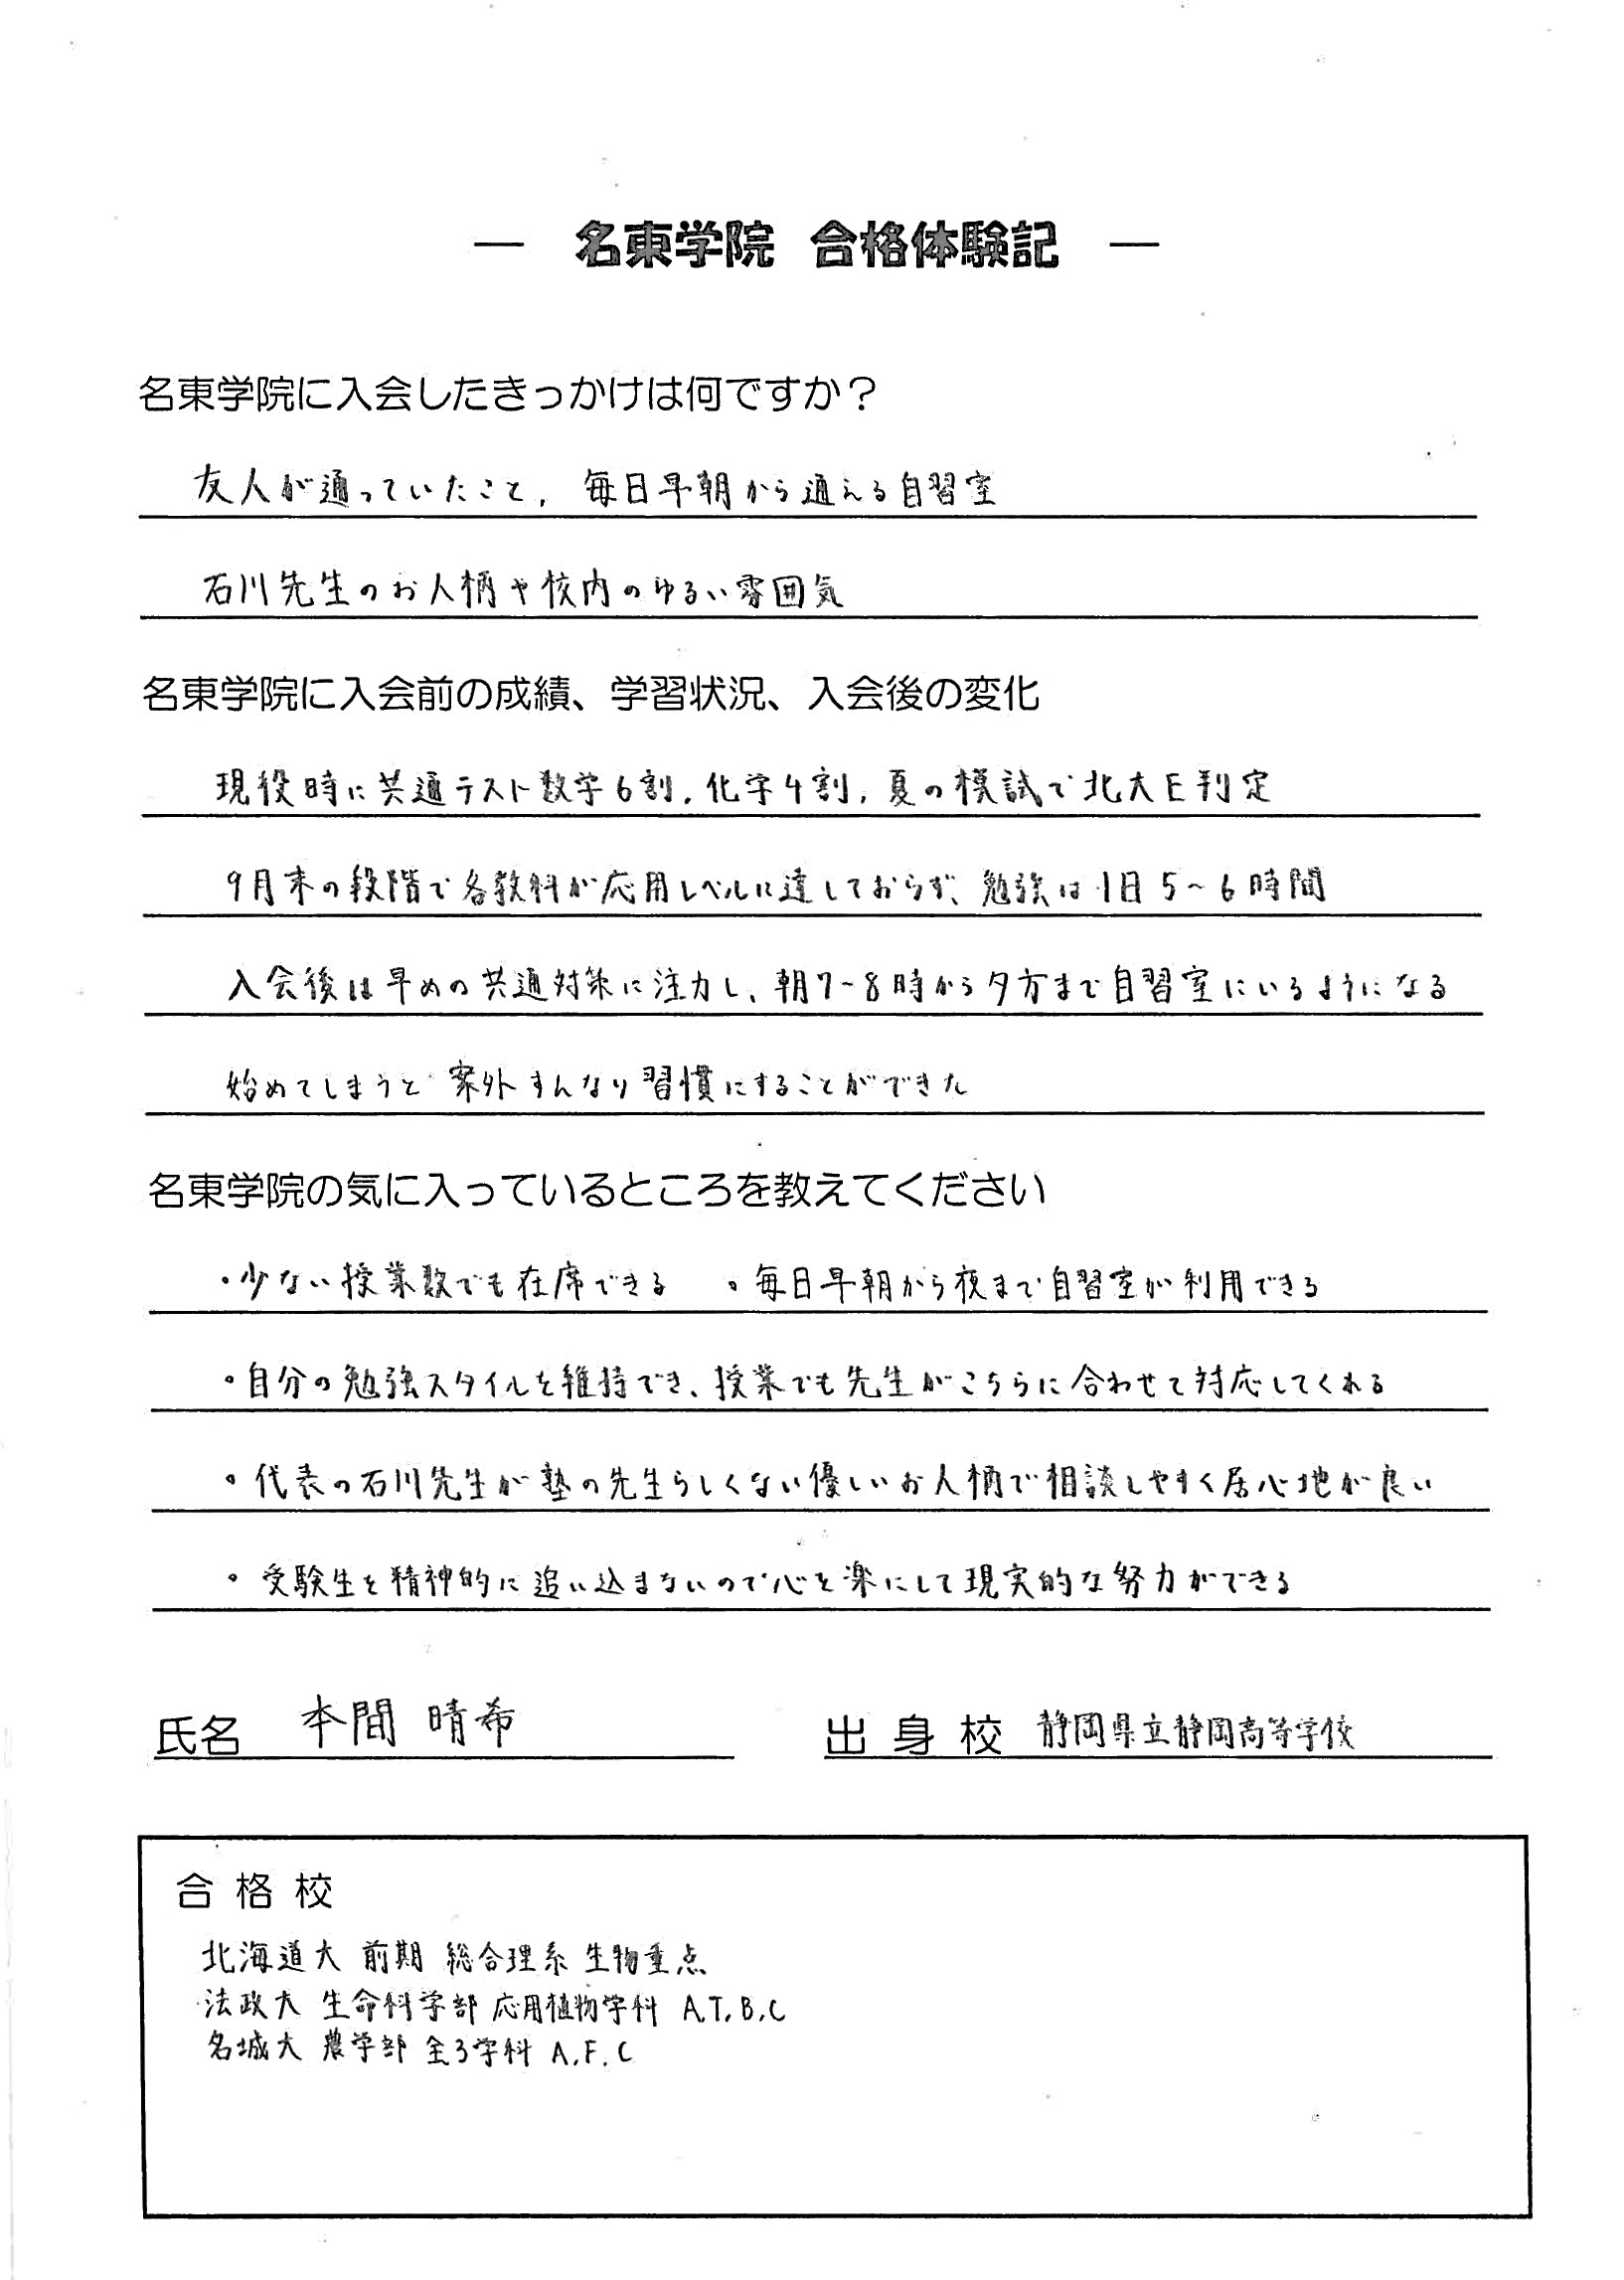 ― 名東学院 合格体験記 ―
名東学院に入会したきっかけは何ですか？
友人が通っていたこと, 毎日早朝から通える自習室
石川先生のお人柄や校内のゆるい雰囲気
名東学院に入会前の成績、学習状況、入会後の変化
現役時に共通テスト数学6割, 化学4割, 夏の模試で北大E判定
9月末の段階で各教科が応用レベルに達しておらず、勉強は1日5~6時間
入会後は早めの共通対策に注力し、朝7~8時から夕方まで自習室にいるようになる
始めてしまうと案外すんなり習慣にすることができた
名東学院の気に入っているところを教えてください
・少ない授業数でも在席できる ・毎日早朝から夜まで自習室が利用できる
・自分の勉強スタイルを維持でき、授業でも先生がこちらに合わせて対応してくれる
・代表の石川先生が塾の先生らしくない優しいお人柄で相談しやすく居心地が良い
・受験生を精神的に追い込まないので心を楽にして現実的な努力ができる
氏名 本間 晴希 出身校 静岡県立静岡高等学校
合格校
北海道大 前期 総合理系 生物重点
法政大 生命科学部 応用植物学科 A,T,B,C
名城大 農学部 全3学科 A,F,C